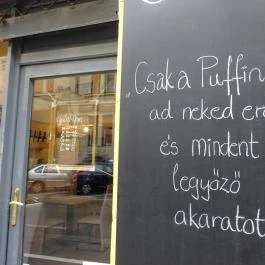 „Csak a Puffin
ad neked erő
és mindent
legyőző
akaratot